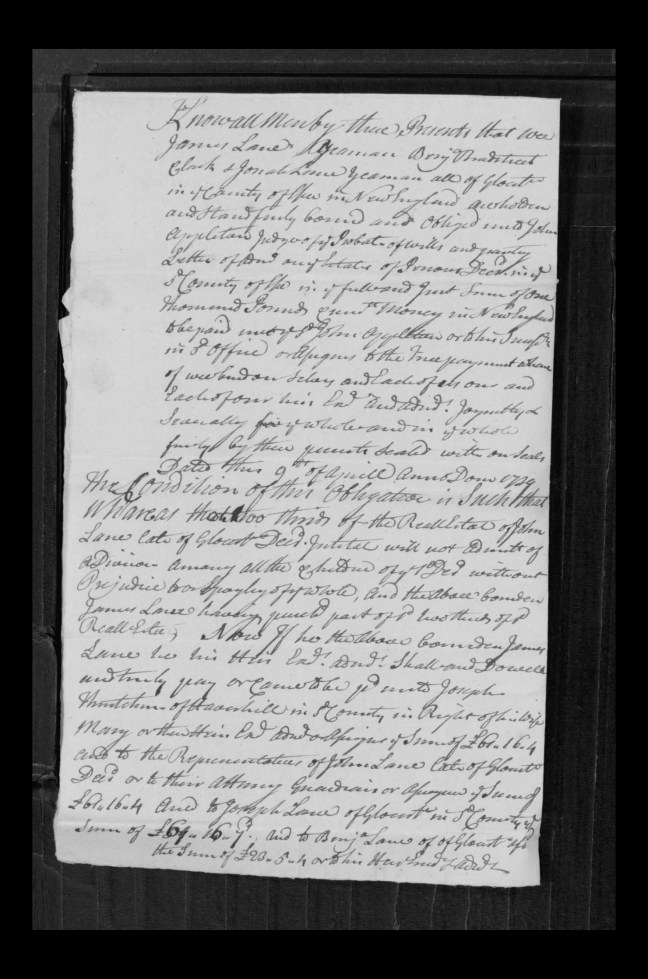 Know all Men by these Presents that wee
James Lane Yeaman Benj Bradstreet
Clerk & Jonah Lane Yeaman all of Glocestr
in ye County of Essex in New England are holden
and Stand firmly bound and Obliged unto John
Appleton Judge of ye Probate of wills and granting
Letters of Admn on ye Estates of Persons Decd in ye
sd County of Essex in ye full and Just Sum of one
thousand Pounds Currt Money in New England
to be paid unto ye sd John Appleton or to his Successrs
in sd Office or Assigns to the True payment whereof
wee bind our Selves and Each of us our and
Each of our heirs Exd and admd Joyntly &
Severally for ye whole and in ye whole
firmly by these presents Sealed with our Seals
Dated this 9th of Aprill Anno Dom 1729
The Condition of this Obligation is Such that
Whereas the two thirds of the Reall Estate of John
Lane late of Glocestr Decd Intestate will not Admitt of
a Division among all the Children of ye sd Decd without
Prejudice to or Spoyling of ye whole, And the above bounden
James Lane having part of sd two thirds of sd
Reall Estate; Now If he the above bounden James
Lane he his Heirs Exd admd Shall and Do well
and truly pay or Cause to be pd unto Joseph
Hutchins of Haverhill in sd County in Right of his Wife
Mary or their Heirs Exd admd or Assigns ye Sum of £61-16-4
and to the Representatives of John Lane late of Glocestr
Decd or to their Attorney Guardian or Assigns ye Sum of
£61-16-4 And to Joseph Lane of Glocestr in sd County ye
Sum of £69-16-7 And to Benja Lane of Glocestr
the Sum of £23-5-4 or to his Heirs Exd & admd